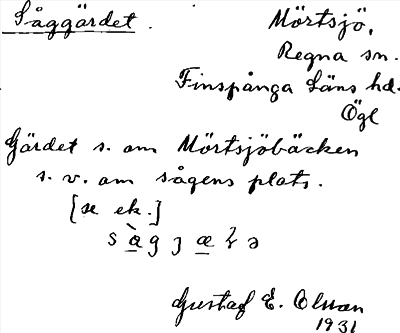 Såggärdet.
Mörtsjö,
Regna sn.
Finspånga Läns hd.
Ögl
Gärdet s. om Mörtsjöbäcken
s. v. om sågens plats.
[se ek.]
Gustaf E. Olsson
1931